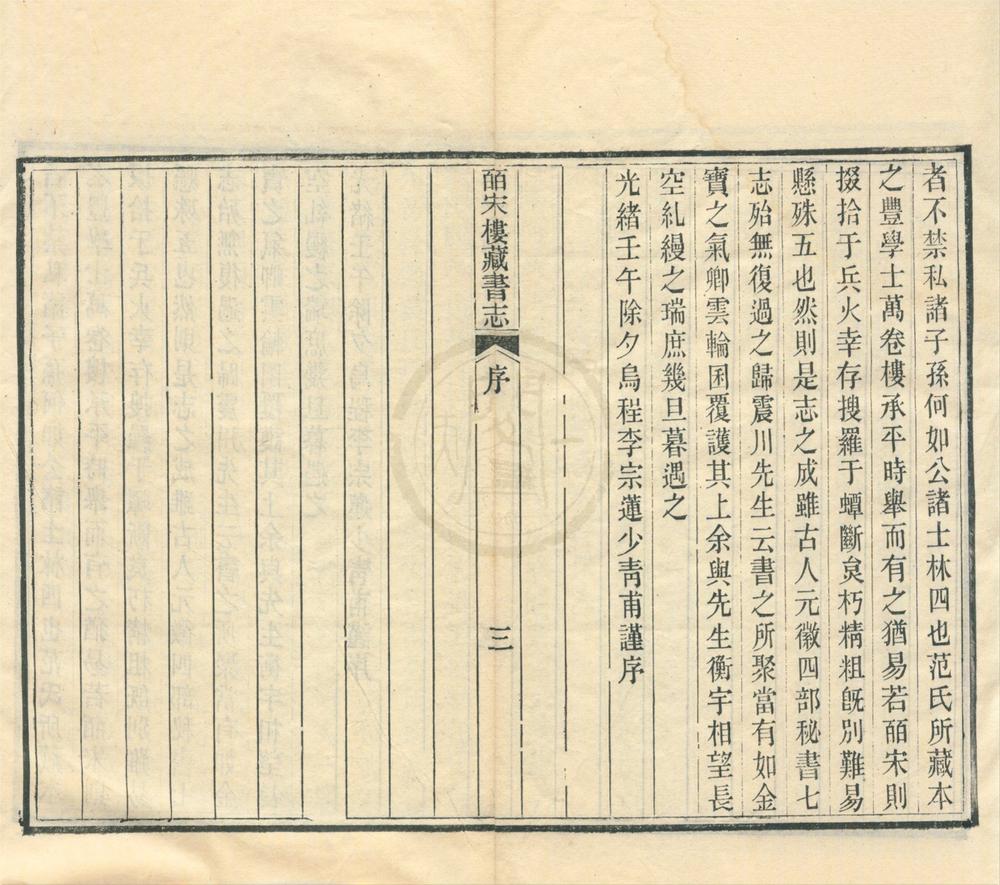 者不禁私諸子孫何如公諸士林四也范氏所藏本
之豐學士萬卷樓承平時舉而有之猶易若皕宋則
掇拾于兵火幸存搜羅于蟫斷炱朽精粗旣別難易
懸殊五也然則是志之成雖古人元徽四部秘書七
志殆無復過之歸震川先生云書之所聚當有如金
寶之氣卿雲輪囷覆護其上余與先生衡宇相望長
空糺縵之瑞庶幾旦暮遇之
光緖壬午除夕烏程李宗蓮少靑甫謹序
皕宋樓藏書志 序 三